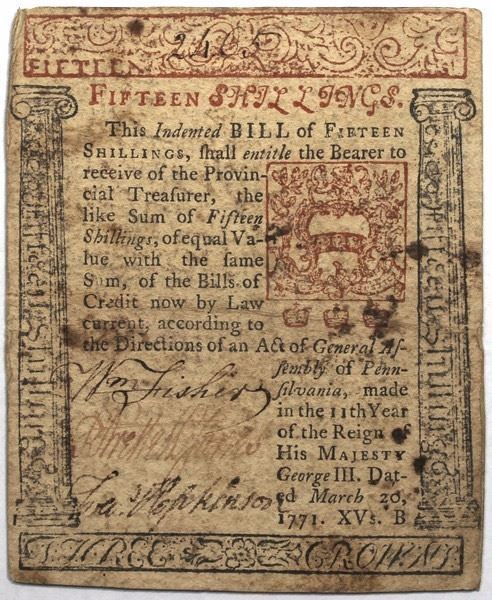 2405
FIFTEEN
FIFTEEN SHILLINGS.
This Indented BILL of FIFTEEN
SHILLINGS, ſhall entitle the Bearer to
receive of the Provin-
cial Treaſurer, the
like Sum of Fifteen
Shillings, of equal Va-
lue with the ſame
Sum, of the Bills of
Credit now by Law
current, according to
the Directions of an Act of General Aſ-
ſembly of Penn-
ſilvania, made
in the 11th Year
of the Reign of
His MAJESTY
George III. Dat-
ed March 20,
1771. XVs. B
Wm Fisher
Hopkinson
Fifteen Shillings
Fifteen Shillings
THREE CROWNS